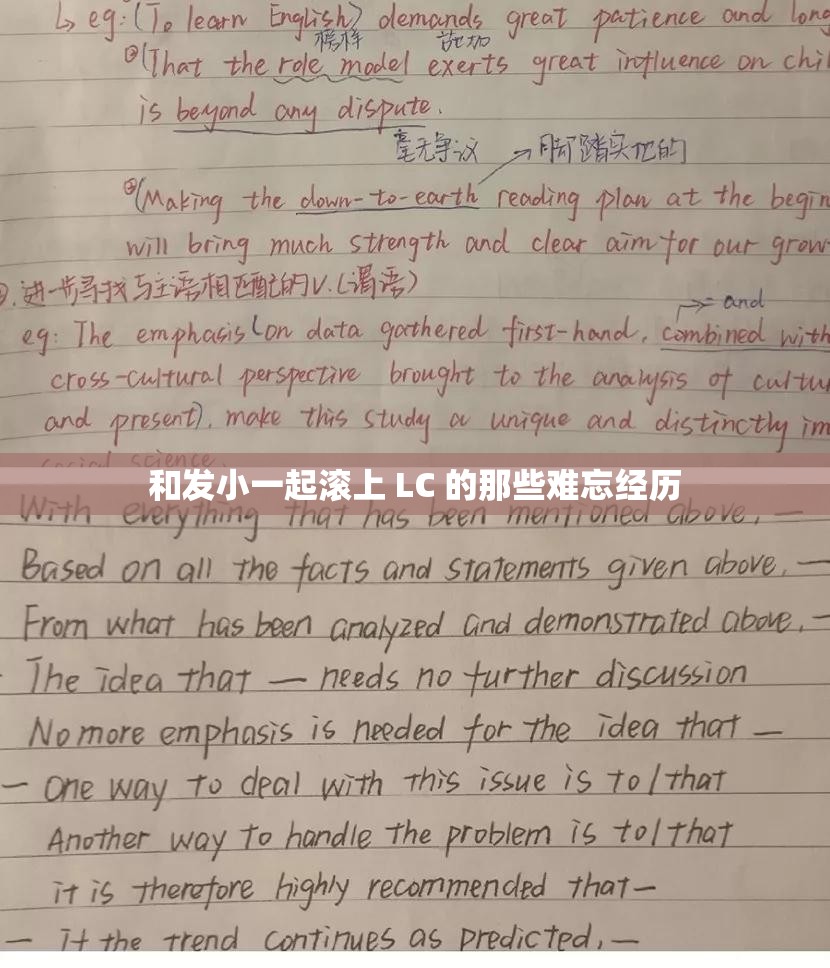 ↳ eg: (To learn English) demands great patience and long
榜样 施加
②(That the role model exerts great influence on chil
is beyond any dispute.
毫无争议 → 脚踏实地的
③(Making the down-to-earth reading plan at the begin
will bring much strength and clear aim for our grow
. 进一步寻找与主语相匹配的V.(谓语)
→ and
eg: The emphasis (on data gathered first-hand, combined with
cross-cultural perspective brought to the analysis of cultu
and present), make this study a unique and distinctly im
social science.
和发小一起滚上 LC 的那些难忘经历
With everything that has been mentioned above, —
Based on all the facts and statements given above, —
From what has been analyzed and demonstrated above, —
The idea that — needs no further discussion
No more emphasis is needed for the idea that —
— One way to deal with this issue is to / that
Another way to handle the problem is to / that
it is therefore highly recommended that —
— if the trend continues as predicted, —